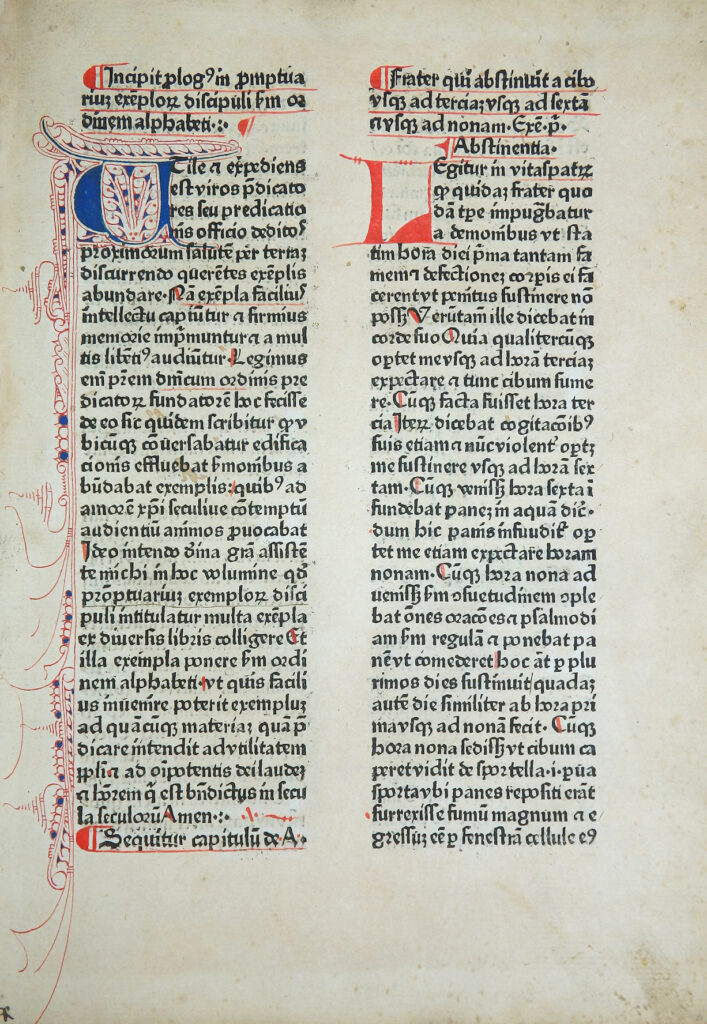 Incipit ꝓlogꝰ in ꝓmptua
riuȝ exẽploꝝ discipuli ẜm or
dinem alphabeti·:·
UTile ⁊ expediens
est viros p̃dicato
res seu predicatio
nis officio deditoꝰ
proximorum salutẽ per terraȝ
discurrendo querẽtes exẽplis
abundare·Nã exẽpla faciliuꝰ
intellectu capiũtur ⁊ firmius
memorie imp̃muntur ⁊ a mul
tis libẽtiꝰ audiũtur·Legimus
em̃ pr̃em dñicum ordinis pre
dicatoꝝ fundatorẽ hoc fecisse
de eo sic quidem scribitur ꝙ v
bicũqȝ cõuersabatur edifica
tionis effluebat ẜmonibus a
bũdabat exemplis:quibꝰ ad
amorẽ xp̃i seculiue cõtemptũ
audientiũ animos ꝓuocabat
Ideo intendo diuina grã assistẽ
te michi in hoc volumine qd̕
prõptuariuȝ exemploꝝ disci
puli intitulatur multa exẽpla
ex diuersis libris colligere Et
illa exempla ponere ẜm ordi
nem alphabeti·vt quis facili
us inuenire poterit exempluȝ
ad quãcũqȝ materiaȝ quã p̃
dicare intendit ad vtilitatem
ppl̃i ⁊ ad oĩpotentis dei laudeȝ
⁊ hõrem q̃ est bñdictus in secu
la seculorũ Amen·:·
Sequitur capitulũ de A·
Frater qui abstinuit a cibo
vsqȝ ad terciaȝ vsqȝ ad sextã
⁊ vsqȝ ad nonam·Exẽ·p̃·
Abstinentia·
LEgitur in vitaspatꝝ
ꝙ quidaȝ frater quo
dã tp̃e impugñabatur
a demonibus vt sta
tim hora diei p̃ma tantam fa
mem ⁊ defectioneȝ corpis ei fa
cerent vt penitus sustinere nõ
possȝ Verũtam ille dicebat in
corde suo Quia qualitercũqȝ
oꝑtet me vsqȝ ad horã terciaȝ
expectare ⁊ tunc cibum sume
re·Cũqȝ facta fuisset hora ter
cia Iteꝝ dicebat cogitacõibꝰ
suis etiam ⁊ nũc violent̕ oꝑtȝ
me sustinere vsqȝ ad horã sex
tam·Cũqȝ venissȝ hora sexta ĩ
fundebat paneȝ in aquã dic̃·
dum hic panis infudit̕ oꝑ
tet me etiam expectare horam
nonam·Cũqȝ hora nona ad
uenissȝ ẜm ꝯsuetudinem ꝯple
bat oñes oracões ⁊ psalmodi
am ẜm regulã ⁊ ponebat pa
nẽ vt comederet hoc ãt ꝑ plu
rimos dies sustinuit quadaȝ
autẽ die similiter ab hora pri
ma vsqȝ ad nonã fecit·Cũqȝ
hora nona sedissȝ vt cibum ca
peret vidit de sportella·i·ꝑua
sporta vbi panes repositi erãt
surrexisse fumũ magnum ⁊ e
gressuȝ eẽ ꝑ fenestrã cellule eꝰ